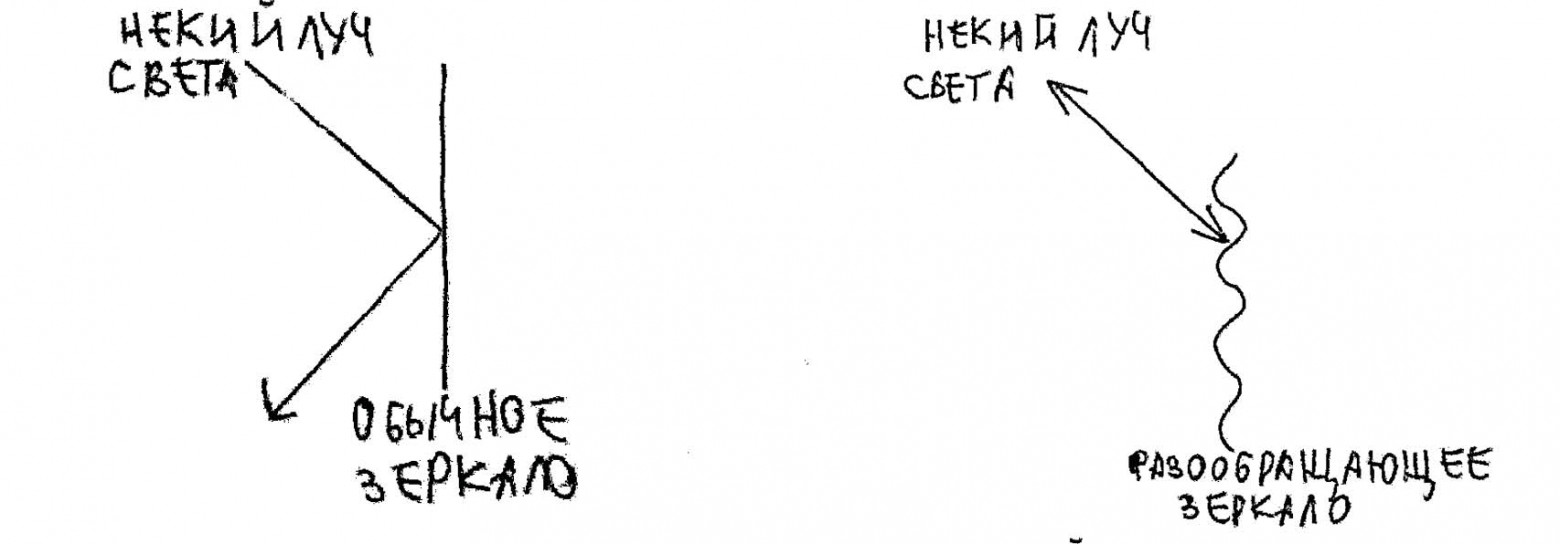 НЕКИЙ ЛУЧ
СВЕТА
ОБЫЧНОЕ
ЗЕРКАЛО
НЕКИЙ ЛУЧ
СВЕТА
ФАЗООБРАЩАЮЩЕЕ
ЗЕРКАЛО